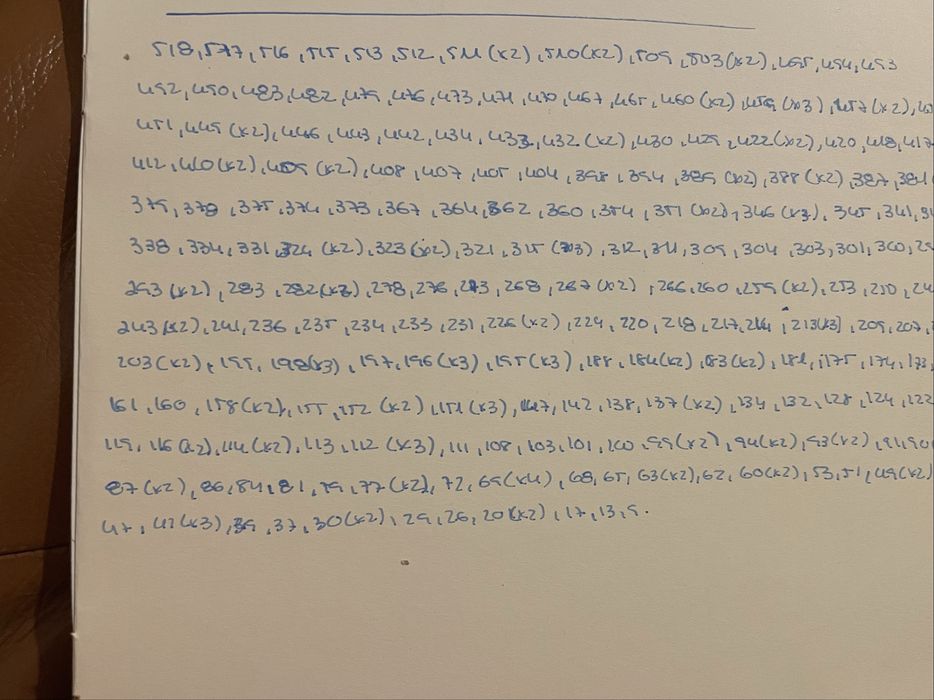 518, 517, 516, 515, 513, 512, 511 (x2), 510 (x2), 509, 503 (x2), 495, 494, 493
492, 490, 483, 482, 479, 476, 473, 471, 470, 467, 465, 460 (x2), 459 (x3), 457 (x2),
451, 449 (x2), 446, 443, 442, 434, 433, 432 (x2), 430, 429, 422 (x2), 420, 418, 417
412, 410 (x2), 409 (x2), 408, 407, 405, 404, 398, 394, 389 (x2), 388 (x2), 387, 384
379, 378, 375, 374, 373, 367, 364, 362, 360, 354, 351 (x2), 346 (x3), 345, 341,
338, 334, 331, 324 (x2), 323 (x2), 321, 315 (x3), 312, 311, 309, 304, 303, 301, 300,
293 (x2), 283, 282 (x3), 278, 276, 273, 268, 267 (x2), 266, 260, 259 (x2), 253, 250,
243 (x2), 241, 236, 235, 234, 233, 231, 226 (x2), 224, 220, 218, 217, 214, 213 (x3), 209, 207,
203 (x2), 199, 198 (x3), 197, 196 (x3), 195 (x3), 188, 184 (x2), 183 (x2), 181, 175, 174, 173,
161, 160, 158 (x2), 155, 152 (x2), 151 (x3), 147, 142, 138, 137 (x2), 134, 132, 128, 124, 122
119, 116 (x2), 114 (x2), 113, 112 (x3), 111, 108, 103, 101, 100, 99 (x2), 94 (x2), 93 (x2), 91, 90
87 (x2), 86, 84, 81, 79, 77 (x2), 72, 69 (x4), 68, 65, 63 (x2), 62, 60 (x2), 53, 51, 49 (x2)
47, 42 (x3), 39, 37, 30 (x2), 29, 26, 20 (x2), 17, 13, 9.